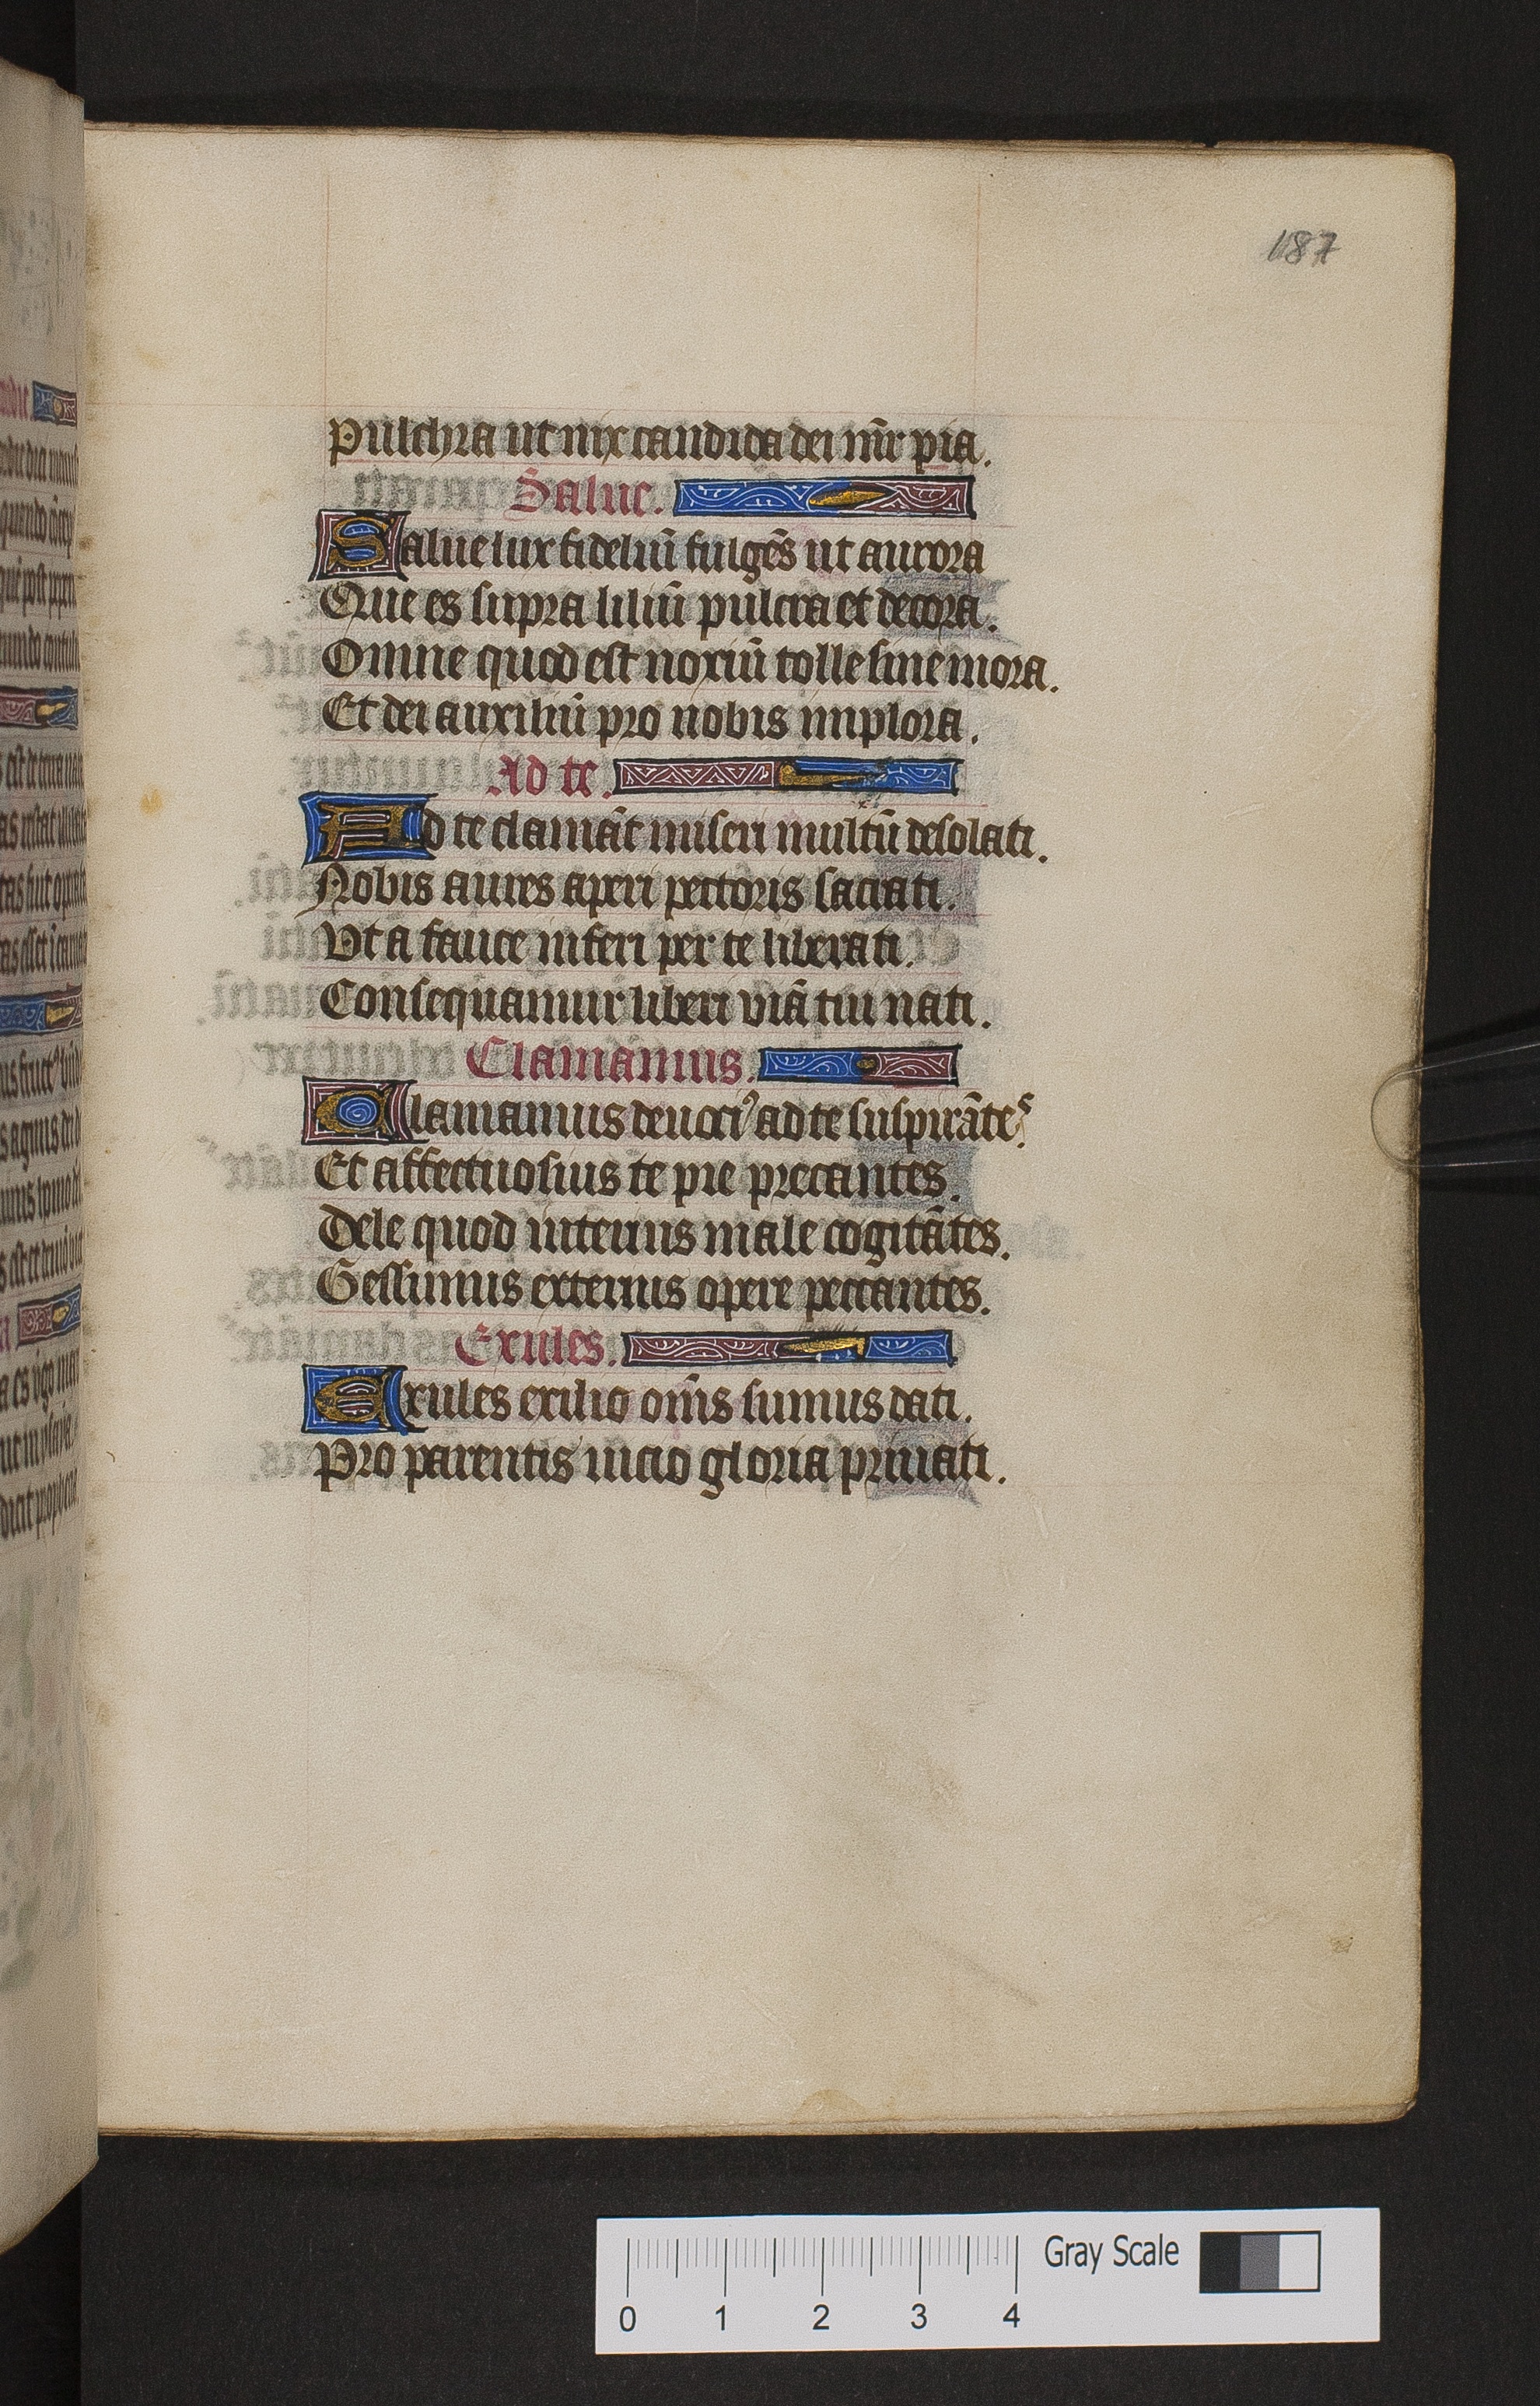 187
Pulchra ut nix candida dei mr̄ pia.
Salue.
Salue lux fideliū fulgēs ut aurora
Que es supra liliū pulcra et decora.
Omne quod est noxiū tolle sine mora.
Et dei auxiliū pro nobis implora.
Ad te.
Ad te clamāt miseri multū desolati.
Nobis aures aperi pectoris sacrati.
Vt a fauce inferi per te liberati.
Consequamur liberi viā tui nati.
Clamamus.
Clamamus deuoci⁹ ad te suspirātes.
Et affectuosius te pie precantes.
Dele quod internis male cogitātes.
Gessimus externis opere peccantes.
Exules.
Exules exilio om̄s sumus dati.
Pro parentis uicio gloria priuati.
Gray Scale
0 1 2 3 4